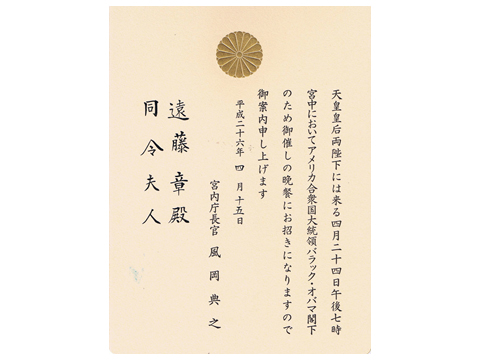 天皇皇后両陛下には来る四月二十四日午後七時
宮中においてアメリカ合衆国大統領バラック・オバマ閣下
のため御催しの晩餐にお招きになりますので
御案内申し上げます
平成二十六年 四月十五日
宮内庁長官 風岡典之
遠藤章殿
同令夫人